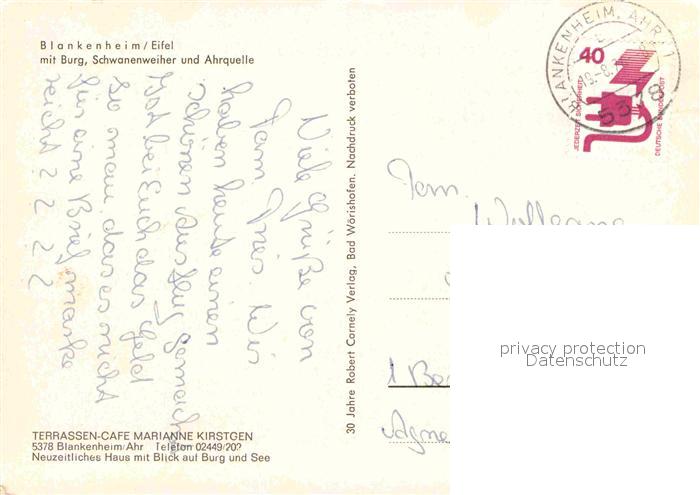 Blankenheim/Eifel
mit Burg, Schwanenweiher und Ahrquelle
Viele Grüße von
Fam. Wir
haben heute einen
schönen Ausflug gemacht
Hat bei Euch das Geld
so man dases nicht
für eine Briefmarke
reicht ? ? ? ?
TERRASSEN-CAFE MARIANNE KIRSTGEN
5378 Blankenheim/Ahr Telefon 02449/20?
Neuzeitliches Haus mit Blick auf Burg und See
30 Jahre Robert Cornely Verlag, Bad Wörishofen. Nachdruck verboten
BLANKENHEIM, AHR 1
5378
40
JEDERZEIT SICHERHEIT
DEUTSCHE BUNDESPOST
Fam.
Wolfgang
1 Be
Agne
privacy protection
Datenschutz